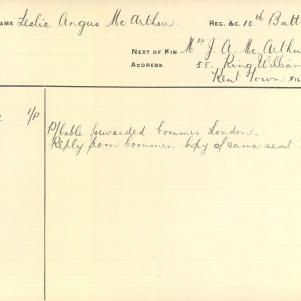 NAME Leslie Angus McArthur. REG. &C. 10th Batt
NEXT OF KIN Mrs J. A. McArthu
ADDRESS 55. King William
Kent Town. FIL
1/P
P/Cable forwarded Commr London.
Reply from Commr. Copy of same sent